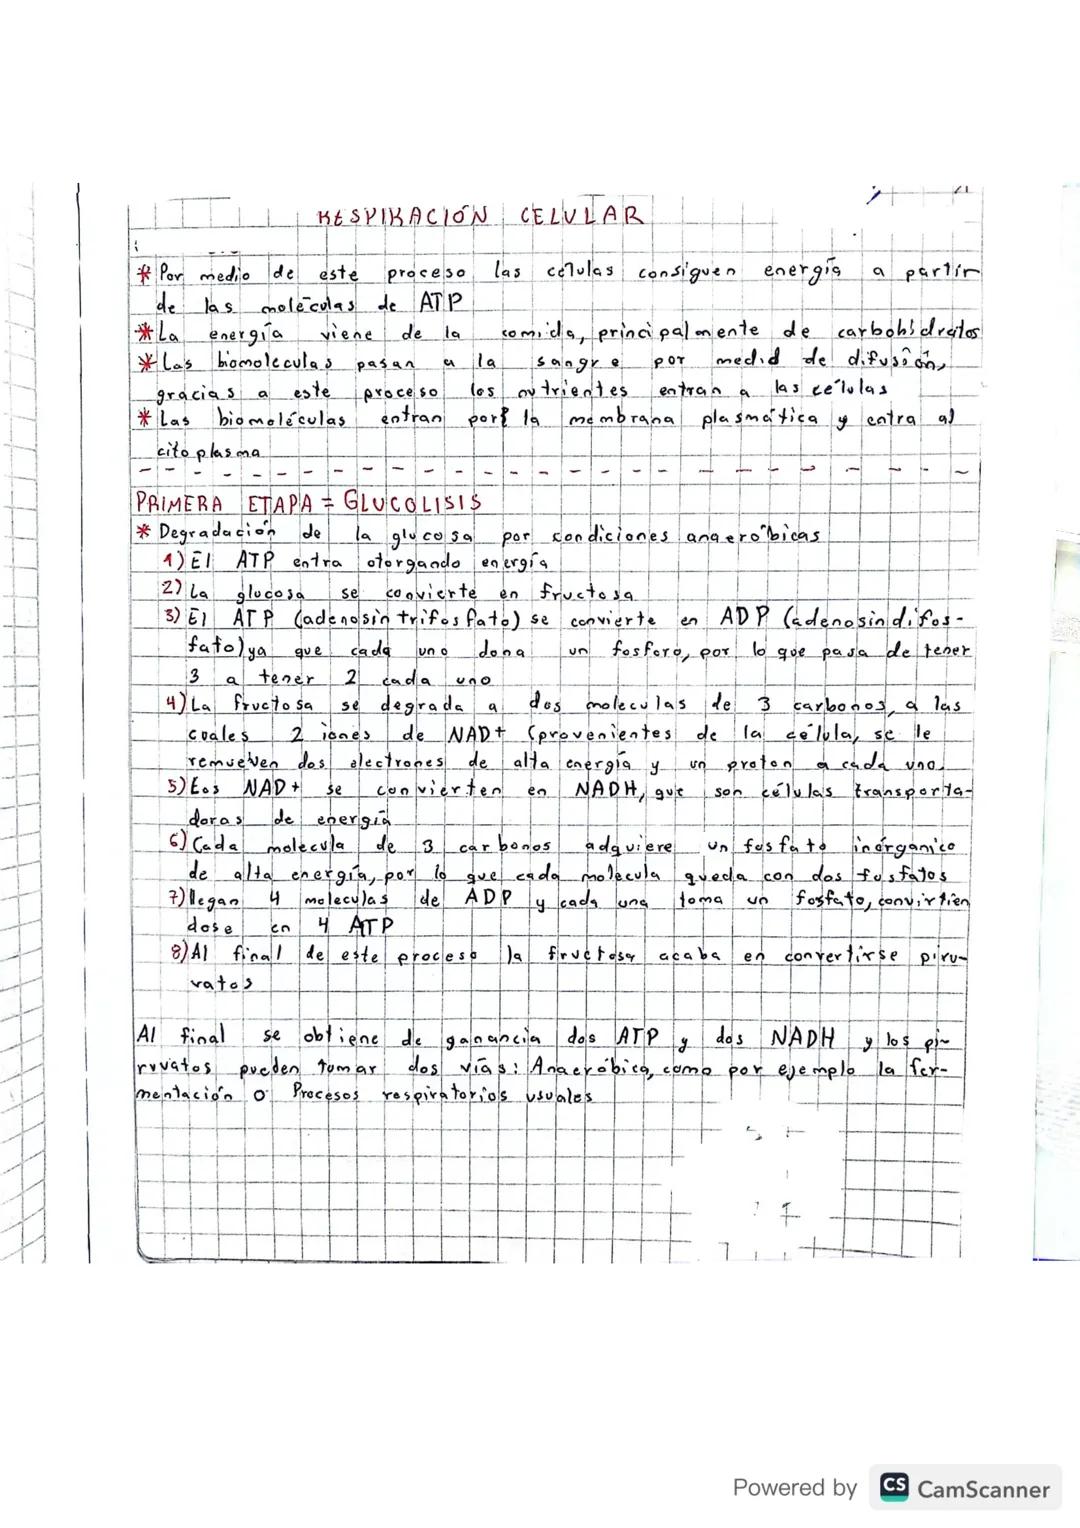 RESPIRACIÓN CELULAR
* Por medio de este proceso las células consiguen energía a partir
de las moléculas de ATP
* La energía viene de la comida, principalmente de carbohidratos
* Las biomoleculas pasan a la sangre por medio de difusión,
gracias a este proceso los nutrientes entran a las células
* Las biomoléculas entran por la membrana plasmática y entra al
citoplasma
PRIMERA ETAPA = GLUCOLISIS
* Degradación de la glucosa por condiciones anaeróbicas
1) El ATP entra otorgando energía
2) La glucosa se convierte en fructosa
3) El ATP (adenosin trifosfato) se convierte en ADP (adenosindifos-
fato) ya que cada uno dona un fosforo, por lo que pasa de tener
3 a tener 2 cada uno
4) La fructosa se degrada a dos moleculas de 3 carbonos, a las
cuales 2 iones de NAD+ (provenientes de la célula, se le
remueven dos electrones de alta energía y un proton a cada uno.
5) Los NAD+ se convierten en NADH, que son células transporta-
doras de energía
6) Cada molecula de 3 carbonos adquiere un fosfato inorganico
de alta energía, por lo que cada molecula queda con dos fosfatos
7) llegan 4 moleculas de ADP y cada una toma un fosfato, convirtien
dose en 4 ATP
8) Al final de este proceso la fructosa acaba en convertirse piru-
vatos
Al final se obtiene de ganancia dos ATP y dos NADH y los pi-
ruvatos pueden tomar dos vías: Anaeróbica, como por ejemplo la fer-
mentación o Procesos respiratorios usuales
Powered by CS CamScanner